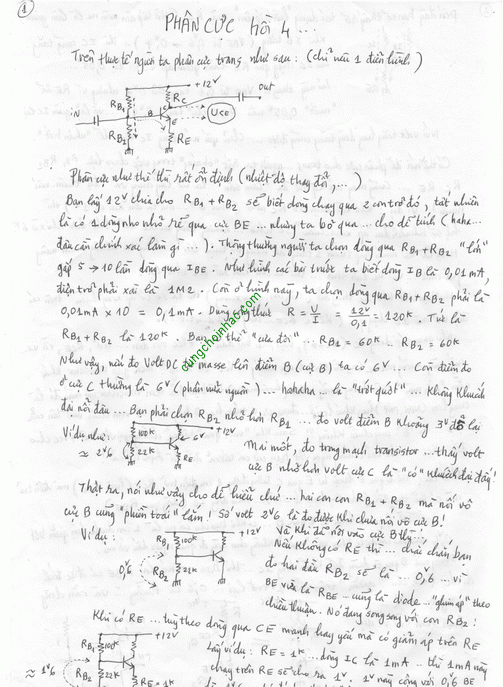 1
PHÂN CỰC hồi 4 ...
Trên thực tế người ta phân cực trans như sau : (chỉ nêu 1 điển hình)
+12V
RB1
RC
out
iN
B
C
E
UCE
RB2
RE
Phân cực như thế thì rất ổn định (nhiệt độ thay đổi, ...)
Bạn lấy 12V chia cho RB1 + RB2 sẽ biết dòng chạy qua 2 con trở đó, tất nhiên
là có 1 dòng nho nhỏ rẽ qua cực BE ... nhưng ta bỏ qua ... cho dễ tính (haha...
đâu cần chính xác làm gì ...). Thông thường người ta chọn dòng qua RB1 + RB2 "lớn"
gấp 5 → 10 lần dòng qua IBE. Như hình các bài trước ta biết dòng IB là 0,01mA,
điện trở phải xài là 1M2. Còn ở hình này, ta chọn dòng qua RB1 + RB2 phải là
0,01mA × 10 = 0,1mA. Dùng công thức R = V/I = 12V/0,1 = 120K. Tức là
RB1 + RB2 là 120K. Bạn có thể "cưa đôi" ... RB1 = 60K .. RB2 = 60K
Như vậy, nếu đo Volt DC từ masse lên điểm B (cực B) ta có 6V ... Còn điểm đo
ở cực C thường là 6V (phân nửa nguồn) ... hahaha ... là "trớt quớt" ... Không Khuếch
đại nổi đâu ... Bạn phải chọn RB2 nhỏ hơn RB1 ... đo volt điểm B khoảng 3V đổ lại
Ví dụ như :
100K
+12V
6V
≈ 2V6
22K
RE
Mai mốt, đo trong mạch transistor ... thấy volt
cực B nhỏ hơn volt cực C là "có" Khuếch đại đấy!
Thật ra, nói như vậy cho dễ hiểu chứ ... hai con RB1 + RB2 mà nối vô
cực B cũng "phiền toái" lắm ! Số volt 2V6 là đo được khi chưa nối vô cực B!
Ví dụ :
RB1
100K
+12V
0,6
RB2
22K
Và, Khi đã nối vào cực B thì
Nếu Không có RE thì ... chắc chắn bạn
đo hai đầu RB2 sẽ là ... 0,6 ... vì
BE vừa là RBE ... cũng là diode ... "ghim áp" theo
chiều thuận. Nó đang song song với con RB2 !
Khi có RE ... tùy theo dòng qua CE mạnh hay yếu mà có giảm áp trên RE
RB1
100K
+12V
≈ 1V6
0,6
RB2
22K
RE = 1K
Lấy ví dụ : RE = 1K ... dòng IC là 1mA .. thì 1mA này
chạy trên RE sẽ cho ra 1V. 1V này cộng với 0,6 BE
cungchoinhac.com